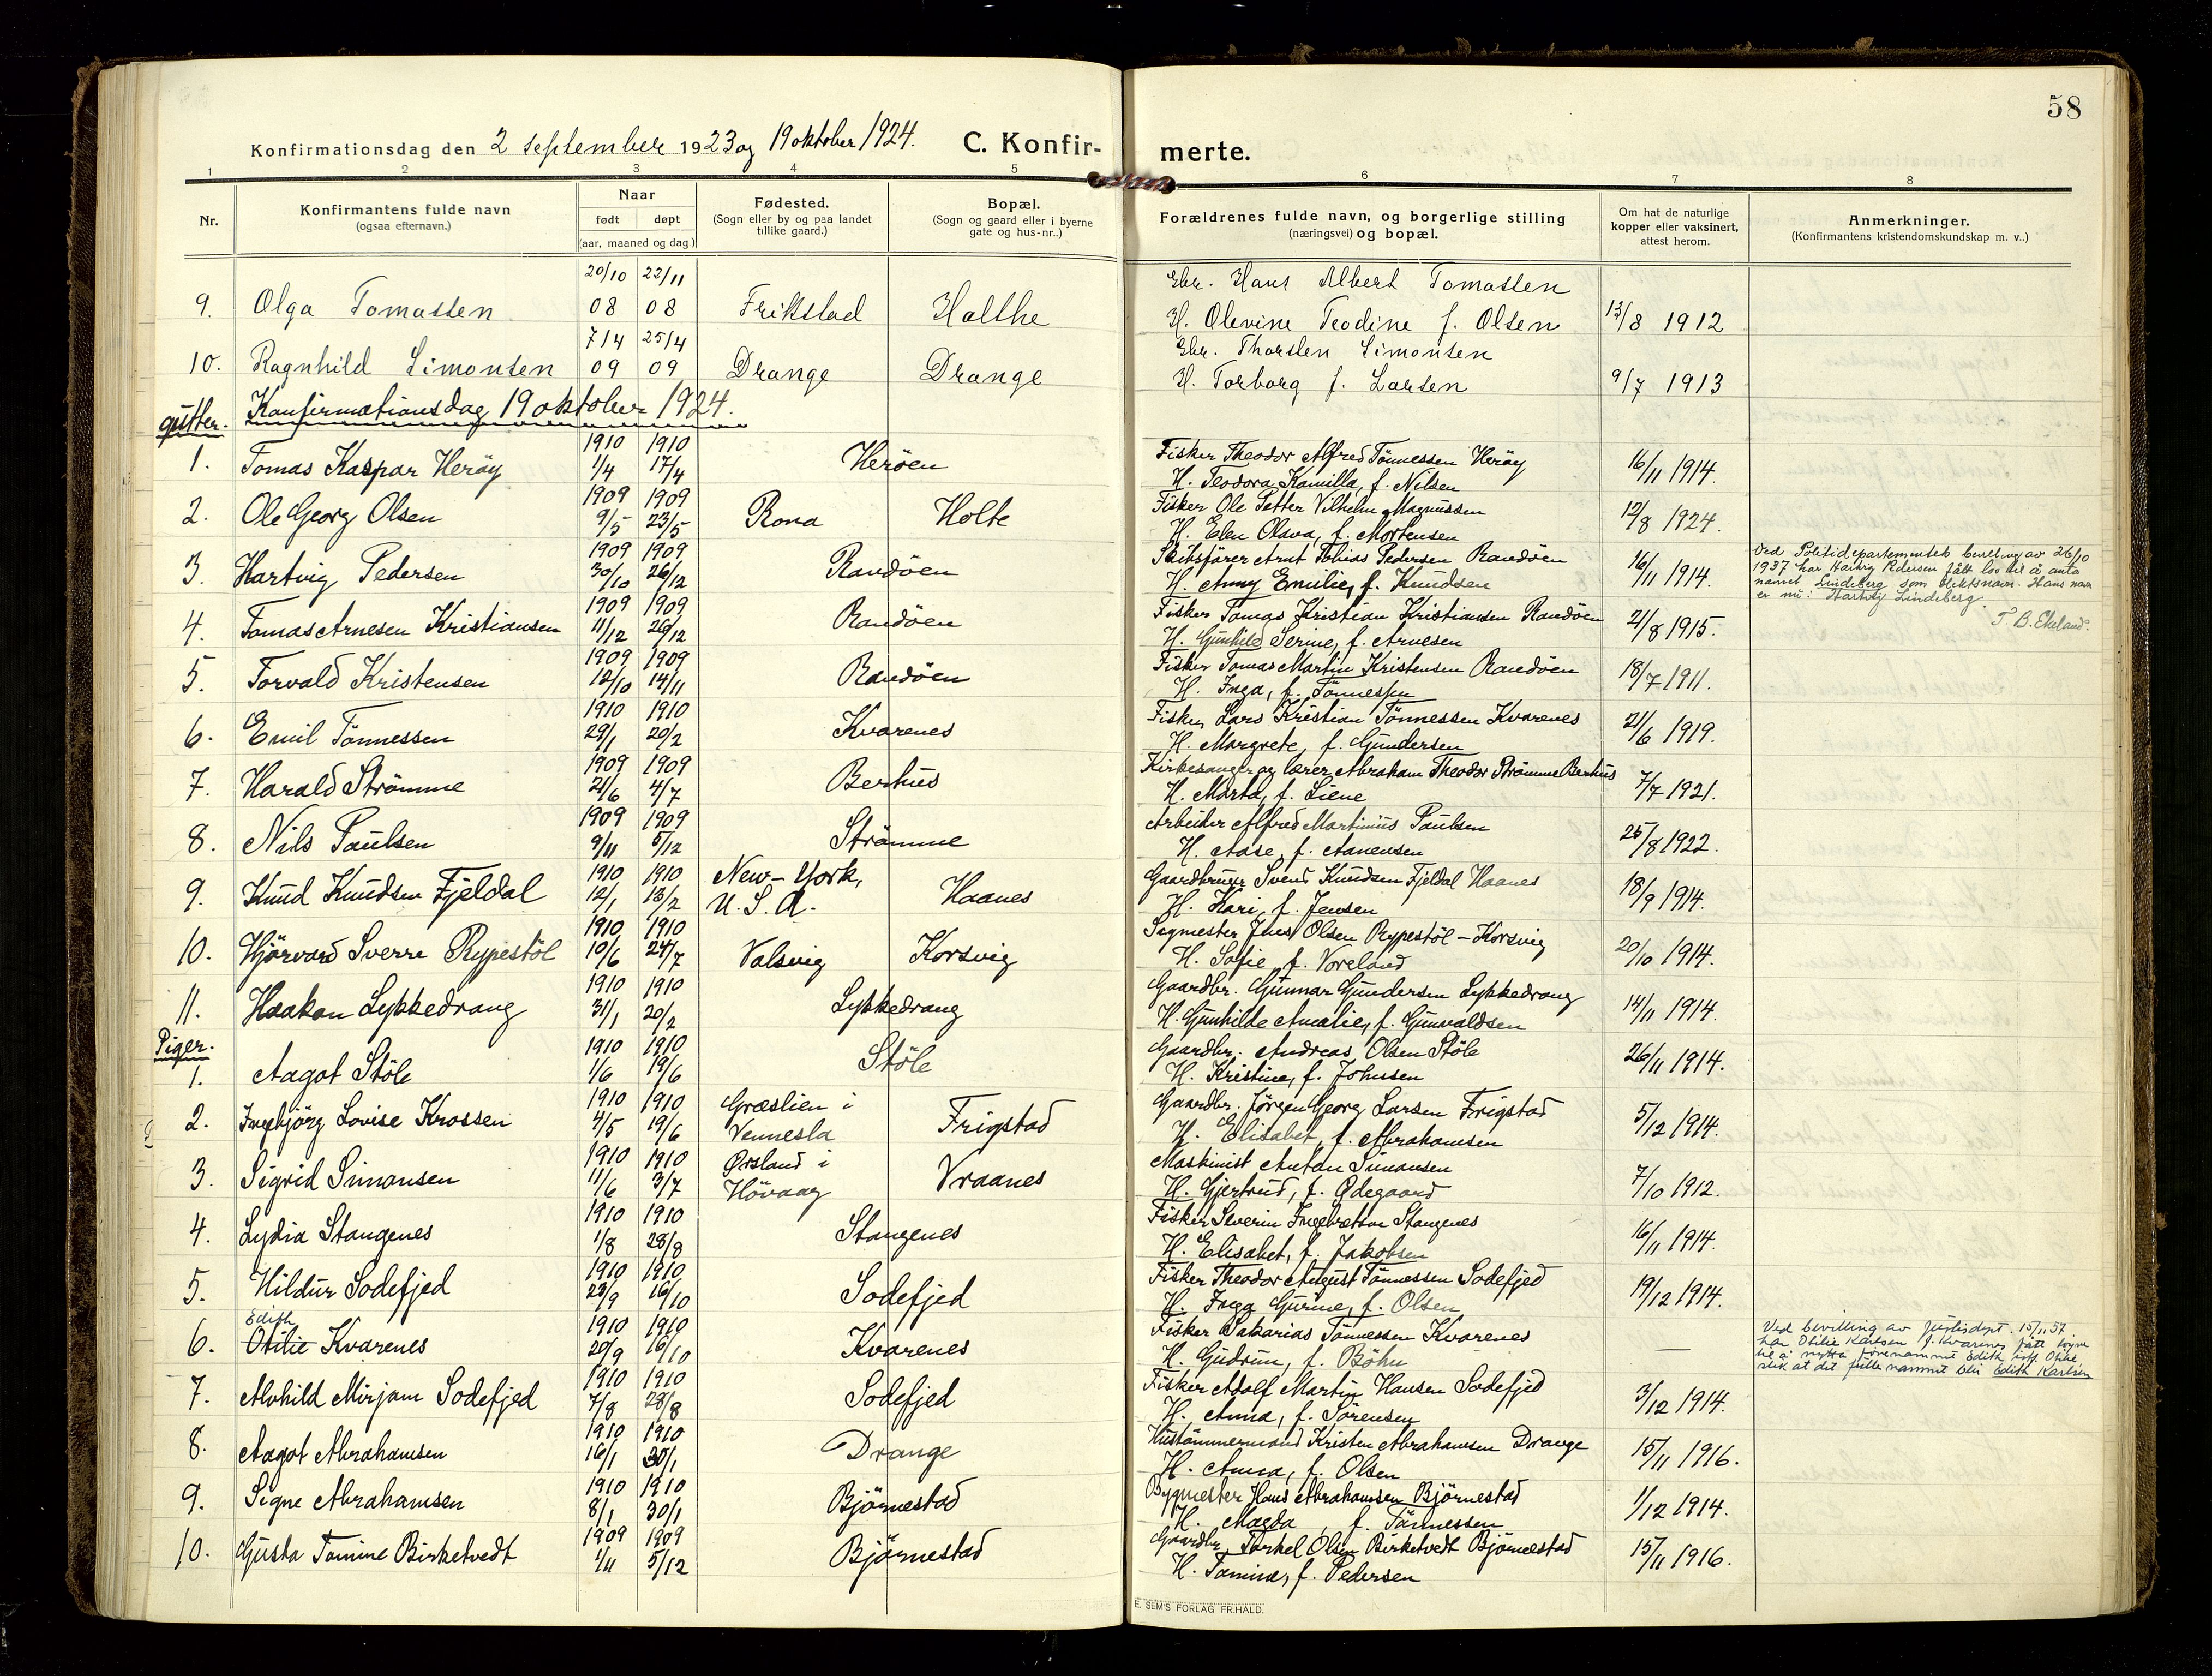 58
Konfirmationsdag den 2 september 1923 og 19 oktober 1924. C. Konfir-
merte.
1 2 3 4 5 6 7 8
Nr.
Konfirmantens fulde navn
(ogsaa efternavn.)
Naar
født døpt
(aar, maaned og dag)
Fødested.
(Sogn eller by og paa landet
tillike gaard.)
Bopæl.
(Sogn og gaard eller i byerne
gate og hus-nr..)
Forældrenes fulde navn, og borgerlige stilling
(næringsvei) og bopæl.
Om hat de naturlige
kopper eller vaksinert,
attest herom.
Anmerkninger.
(Konfirmantens kristendomskundskap m. v..)
20/10 22/11 Gbr. Hans Albert Tomassen
9. Olga Tomassen 08 08 Frikstad Holthe H. Olevine Teodine f. Olsen 13/8 1912
7/4 25/4 Gbr. Thorsten Simonsen
10. Ragnhild Simonsen 09 09 Drange Drange H. Torborg f. Larsen 9/7 1913
gutter. Konfirmationsdag 19 oktober 1924.
1910 1910 Fisker Theodor Alfred Tönnessen Heröy
1. Tomas Kaspar Heröy 1/4 17/4 Heröen H. Teodora Kamilla, f. Nilsen 16/11 1914.
1909 1909 Fisker Ole Petter Vilhelm Magnussen
2. Ole Georg Olsen 9/5 23/5 Rona Holte H. Elen Olava, f. Mortensen 12/8 1924.
1909 1909 Skibsfører Arnt Tobias Pedersen Randöen
3. Hartvig Pedersen 30/10 26/12 Randöen H. Anny Emilie, f. Knudsen 16/11 1914.
Ved Politidepartementets bevilling av 26/10
1937 har Hartvig Pedersen fått lov til å anta
navnet Lindeberg som slektsnavn. Hans navn
er nu: Hartvig Lindeberg.
T. B. Ekeland.
1909 1909 Fisker Tomas Kristian Kristiansen Randöen
4. Tomas Arnesen Kristiansen 11/12 26/12 Randöen H. Gunhild Serine, f. Arnesen 21/8 1915.
1909 1909 Fisker Tomas Martin Kristensen Randöen
5. Torvald Kristensen 12/10 14/11 Randöen H. Inga, f. Tönnessen 18/7 1911.
1910 1910 Fisker Lars Kristian Tönnessen Kvarenes
6. Emil Tönnessen 29/1 20/2 Kvarenes H. Margrete, f. Gundersen 21/6 1919.
1909 1909 Kirkesanger og lærer Abraham Theodor Strömme Berhus
7. Harald Strömme 21/6 4/7 Berhus H. Marta, f. Liene 7/7 1921.
1909 1909 Arbeider Alfred Martinius Paulsen
8. Nils Paulsen 9/11 5/12 Strömme H. Aase, f. Aanensen 25/8 1922.
1910 1910 New-York, Gaardbruger Svend Knudsen Fjeldal Haanes
9. Knud Knudsen Fjeldal 12/1 13/2 U. S. A. Haanes H. Kari, f. Jensen 18/9 1914.
1910 1910 Sagmester Jens Olsen Rypestöl - Korsvig
10. Hjörvard Sverre Rypestöl 10/6 24/7 Valsvig Korsvig H. Sofie, f. Voreland 20/10 1914.
1910 1910 Gaardbr. Gunnar Gundersen Lykkedrang
11. Haakon Lykkedrang 31/1 20/2 Lykkedrang H. Gunhilde Amalie, f. Gunvaldsen 14/11 1914.
Piger. 1910 1910 Gaardbr. Andreas Olsen Stöle
1. Aagot Stöle 1/6 19/6 Stöle H. Kristine, f. Johnsen 26/11 1914.
1910 1910 Græslien i Gaardbr. Jörgen Georg Larsen Frigstad
2. Ingebjörg Lovise Krossen 4/5 19/6 Vennesla Frigstad H. Elisabet, f. Abrahamsen 5/12 1914.
1910 1910 Ørsland i Maskinist Anton Simonsen
3. Sigrid Simonsen 11/6 3/7 Hövaag Vraanes H. Gjertrud, f. Ødegaard 7/10 1912.
1910 1910 Fisker Severin Ingebretson Stangenes
4. Lydia Stangenes 1/8 28/8 Stangenes H. Elisabet, f. Jakobsen 16/11 1914.
1910 1910 Fisker Theodor August Tönnessen Sodefjed
5. Hildur Sodefjed 23/9 16/10 Sodefjed H. Inga Gurine, f. Olsen 19/12 1914.
Edith 1910 1910 Fisker Sakarias Tönnessen Kvarenes
6. Otilie Kvarenes 20/9 16/10 Kvarenes H. Gudrun, f. Böhn —
Ved bevilling av Justisdept. 15/11 57
har Otilie Karlsen f. Kvarenes fått løyve
til å nytta førenamnet Edith istf. Otilie,
slik at det fulle namnet blir Edith Karlsen
1910 1910 Fisker Adolf Martin Hansen Sodefjed
7. Alvhild Mirjam Sodefjed 7/8 28/8 Sodefjed H. Anna, f. Sörensen 3/12 1914.
1910 1910 Hustömmermand Kristen Abrahamsen Drange
8. Aagot Abrahamsen 16/1 30/1 Drange H. Anna, f. Olsen 15/11 1916.
1910 1910 Bygmester Hans Abrahamsen Björnestad
9. Signe Abrahamsen 8/1 30/1 Björnestad H. Magda, f. Tönnessen 1/12 1914.
1909 1909 Gaardbr. Torkel Olsen Birketvedt Björnestad
10. Gusta Tomine Birketvedt 1/11 5/12 Björnestad H. Tomine, f. Pedersen 15/11 1916.
E. SEM'S FORLAG FR.HALD.